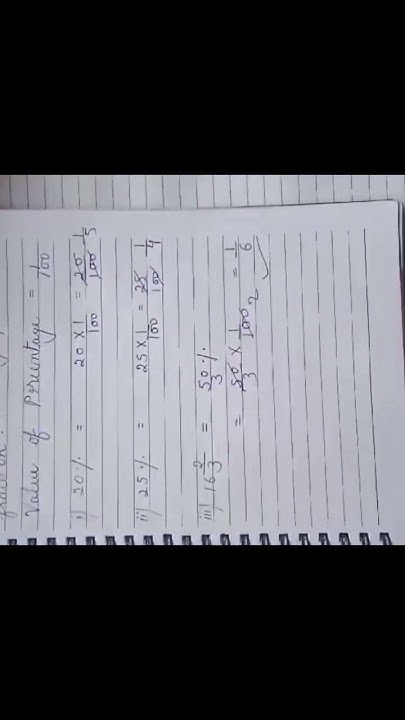 fraction.
Value of Percentage = 1/100
i) 20% = 20 × 1/100 = 20/100 1/5
ii) 25% = 25 × 1/100 = 25/100 1/4
iii) 16 2/3 = 50/3 %
= 50/3 × 1/100 2 = 1/6 ✓